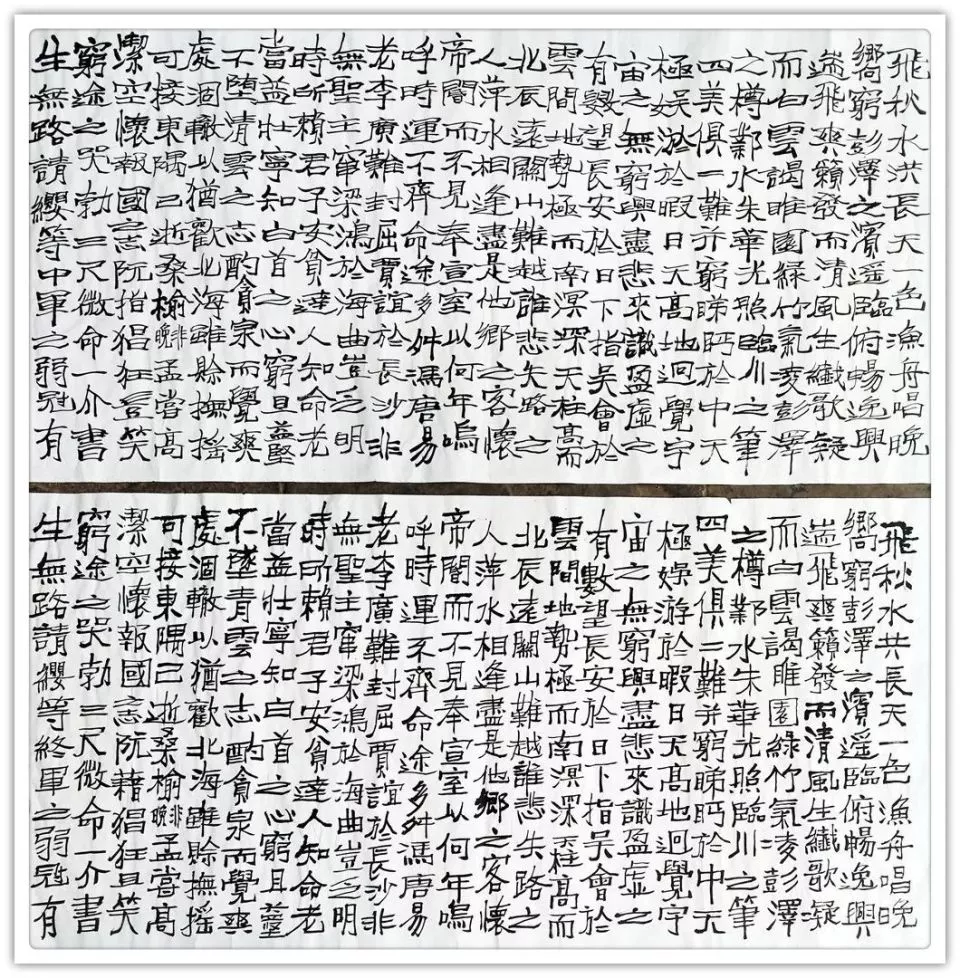 飛秋水洪長天一色漁舟唱晚
嚮窮彭澤之濱遥臨俯暢逸興
遄飛爽籟發而清風生纖歌凝
而白雲謁睢園綠竹氣淩彭澤
之樽鄴水朱華光照臨川之筆
四美俱一難并窮睇眄於中天
極娱游於暇日天高地迥覺宇
宙之無窮興盡悲來識盈虛之
有數望長安於日下指吳會於
雲間地勢極而南溟深天柱高而
北辰遠關山難越誰悲失路之
人萍水相逢盡是他鄉之客懷
帝閽而不見奉宣室以何年嗚
呼時運不齊命途多舛馮唐易
老李廣難封屈賈誼於長沙非
無聖主竄梁鴻於海曲豈之明
時所賴君子安貧達人知命老
當益壯寧知白首之心窮且益堅
不墮清雲之志酌貪泉而覺爽
處涸轍以猶歡北海雖賒撫摇
可接東隅已逝桑榆非晚孟嘗高
潔空懷報國之志阮指猖狂豈笑
窮途之哭勃三尺微命一介書
生無路請纓等中軍之弱冠有
飛秋水共長天一色漁舟唱晚
嚮窮彭澤之濱遥臨俯暢逸興
遄飛爽籟發而清風生纖歌凝
而白雲謁睢園綠竹氣凌彭澤
之樽鄴水朱華光照臨川之筆
四美俱二難并窮睇眄於中天
極娛游於暇日天高地迥覺宇
宙之無窮興盡悲來識盈虛之
有數望長安於日下指吳會於
雲間地勢極而南溟深天柱高而
北辰遠關山難越誰悲失路之
人萍水相逢盡是他鄉之客懷
帝閽而不見奉宣室以何年嗚
呼時運不齊命途多舛馮唐易
老李廣難封屈賈誼於長沙非
無聖主竄梁鴻於海曲豈乏明
時所賴君子安貧達人知命老
當益壯寧知白首之心窮且
不墜青雲之志酌貪泉而覺爽
處涸轍以猶歡北海雖賒撫摇
可接東隅已逝桑榆非晚孟嘗高
潔空懷報國之志阮藉猖狂且笑
窮途之哭勃三尺微命一介書
生無路請纓等終軍之弱冠有